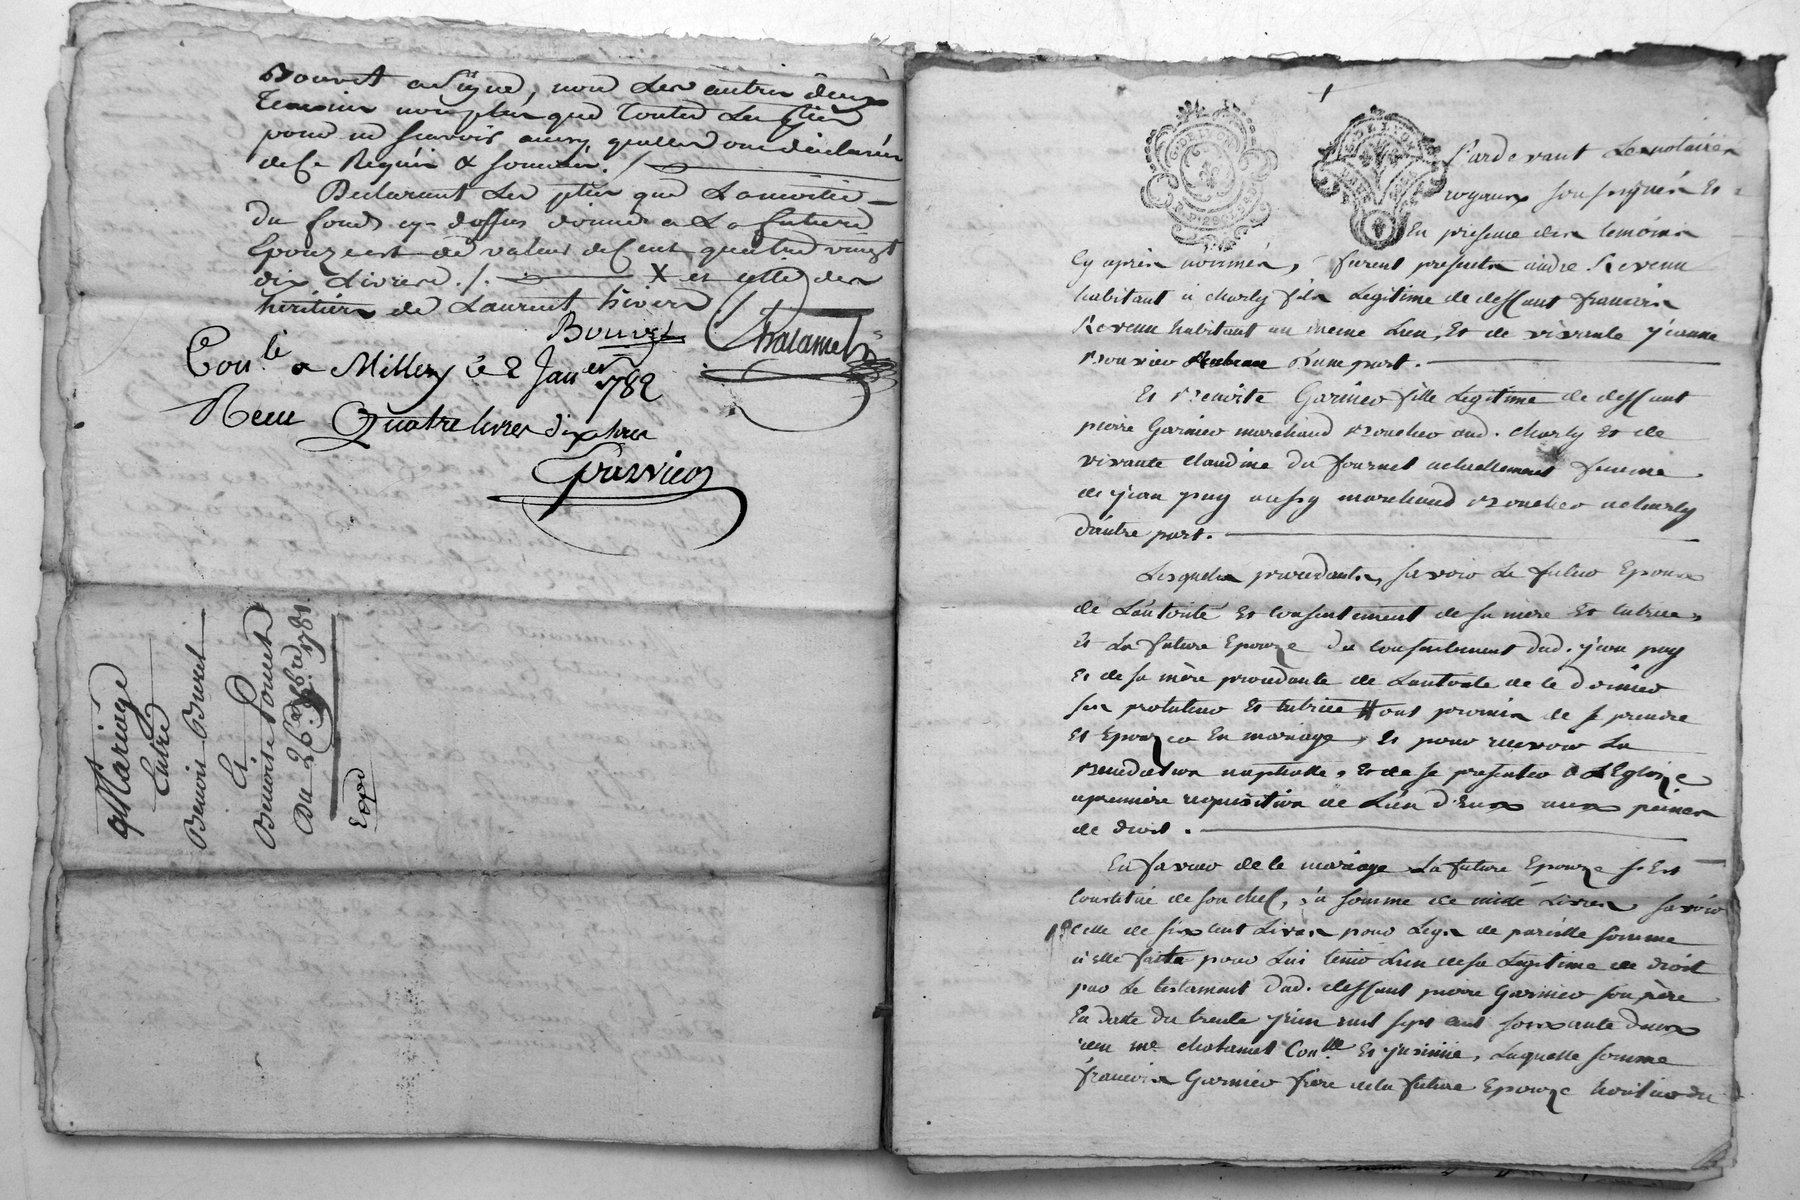 Bouvet a signé, non les autres deux
temoins non plus que toutes les ptiès
pour ne scavoir ainsy quelles ont déclarée
de ce Requis & sommés ./.
Declarant les pties que la moitié
du fonds cy-dessus donné a la future
Epouze est de valeur de Cent quatre vingt
dix Livres ./. X et celle des
héritiers de Laurent hivers
Bouvet Chalamel
Con.lé a Millery le 2 Janer 1782
Recu Quatre livres dix sols
Mariage
Entre
Benoit Buret
Et
Benoite Pouret
Du 26 xbre 1781
Expd
G. DE LYON
Pardevant Les notaires
royaux soussignés Et
En presence des temoins
Cy après nommés, furent presents andré Revenu
habitant à Charly fils Legitime de deffunt francois
Revenu habitant au meme Lieu, Et de vivante Jeanne
D'une part.
Et Benoite Garnier fille Legitime de deffunt
pierre Garnier marchand Boucher aud. Charly Et de
vivante Claudine du fournel actuellement femme
de Jean puy aussy marchand Boucher a Charly
D'autre part.
Lesquels procedants, savoir Le futur Epoux
de L'autorité Et Consentement de sa mere Et tutrice,
Et La future Epouze du Consentement dud. Jean puy
Et de sa mère procedante de L'autorité de ce dernier
ses protuteur Et tutrice ont promis de se prendre
Et Epouzer En mariage, Et pour recevoir La
Benediction nuptialle, Et de se presenter à L'Eglize
a premiere requisition de L'un d'Eux aux peines
de droit.
En faveur de ce mariage La future Epouze s'Est
Constitué de son chef, La somme de mille Livres savoir
Celle de six Cent Livres pour Legs de pareille somme
à elle faitte pour Lui tenir Lieu de sa Legitime de droit
par Le testament dud. deffunt pierre Garnier son père
En datte du trente Juin mil sept Cent soixante deux
recu me. Chalamel Con.llé Et Insinué, Laquelle somme
francois Garnier frère de la future Epouze heritier du